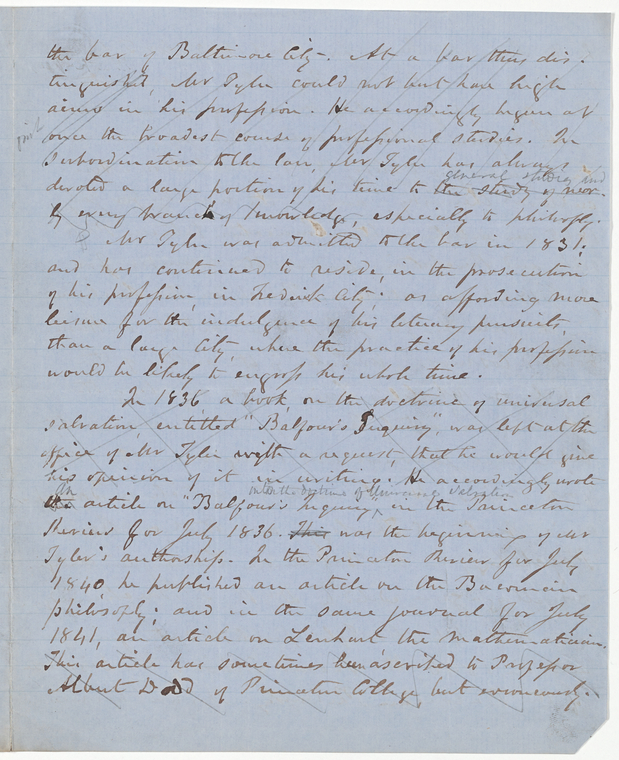 the bar of Baltimore City. At a bar thus dis-
tinguished, Mr Tyler could not but have high
aims in his profession. He accordingly began at
once the broadest course of professional studies. In
subordination to the law, Mr Tyler has always
general studies and
devoted a large portion of his time to the study of near-
ly every branch of knowledge, especially to philosophy.
Mr Tyler was admitted to the bar in 1831;
and has continued to reside, in the prosecution
of his profession, in Frederick City: as affording more
leisure for the indulgence of his literary pursuits,
than a large City, where the practice of his profession
would be likely to engross his whole time.
In 1836 a book, on the doctrine of universal
salvation, entitled "Balfour's Inquiry", was left at the
office of Mr Tyler with a request, that he would give
his opinion of it in writing. He accordingly wrote
An on the doctrine of Universal Salvation
the article on "Balfour's Inquiry", in the Princeton
Review for July 1836. This was the beginning of Mr
Tyler's authorship. In the Princeton Review for July
1840, he published an article on the Baconian
philosophy; and in the same journal for July
1841, an article on Lenhart the mathematician.
This article has sometimes been ascribed to Professor
Albert Dodd of Princeton College, but erroneously.